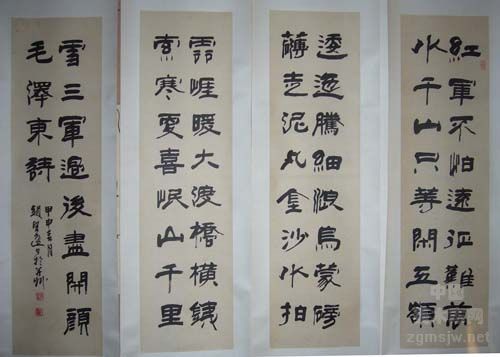 紅軍不怕遠征難萬
水千山只等閑五嶺
逶迤騰細浪烏蒙磅
礴走泥丸金沙水拍
雲崖暖大渡橋橫鐵
索寒更喜岷山千里
雪三軍過後盡開顏
毛澤東詩
甲申春月
zgmsjw.net